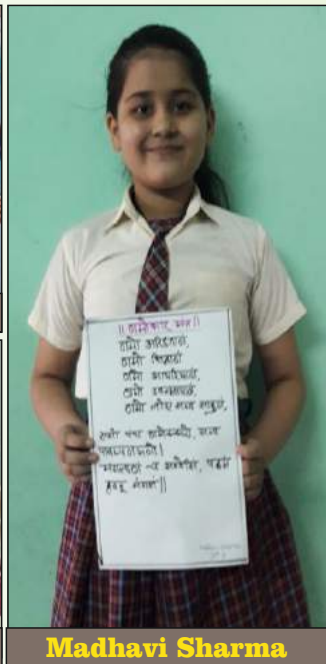 || णमोकार मंत्र ||
णमो अरिहंताणं,
णमो सिद्धाणं
णमो आयरियाणं,
णमो उवज्झायाणं,
णमो लोए सव्व साहूणं,
एसो पंच णमोक्कारो, सव्व
पावप्पणासणो।
मंगलाणं च सव्वेसिं, पढमं
हवइ मंगलं||
Madhavi Sharma